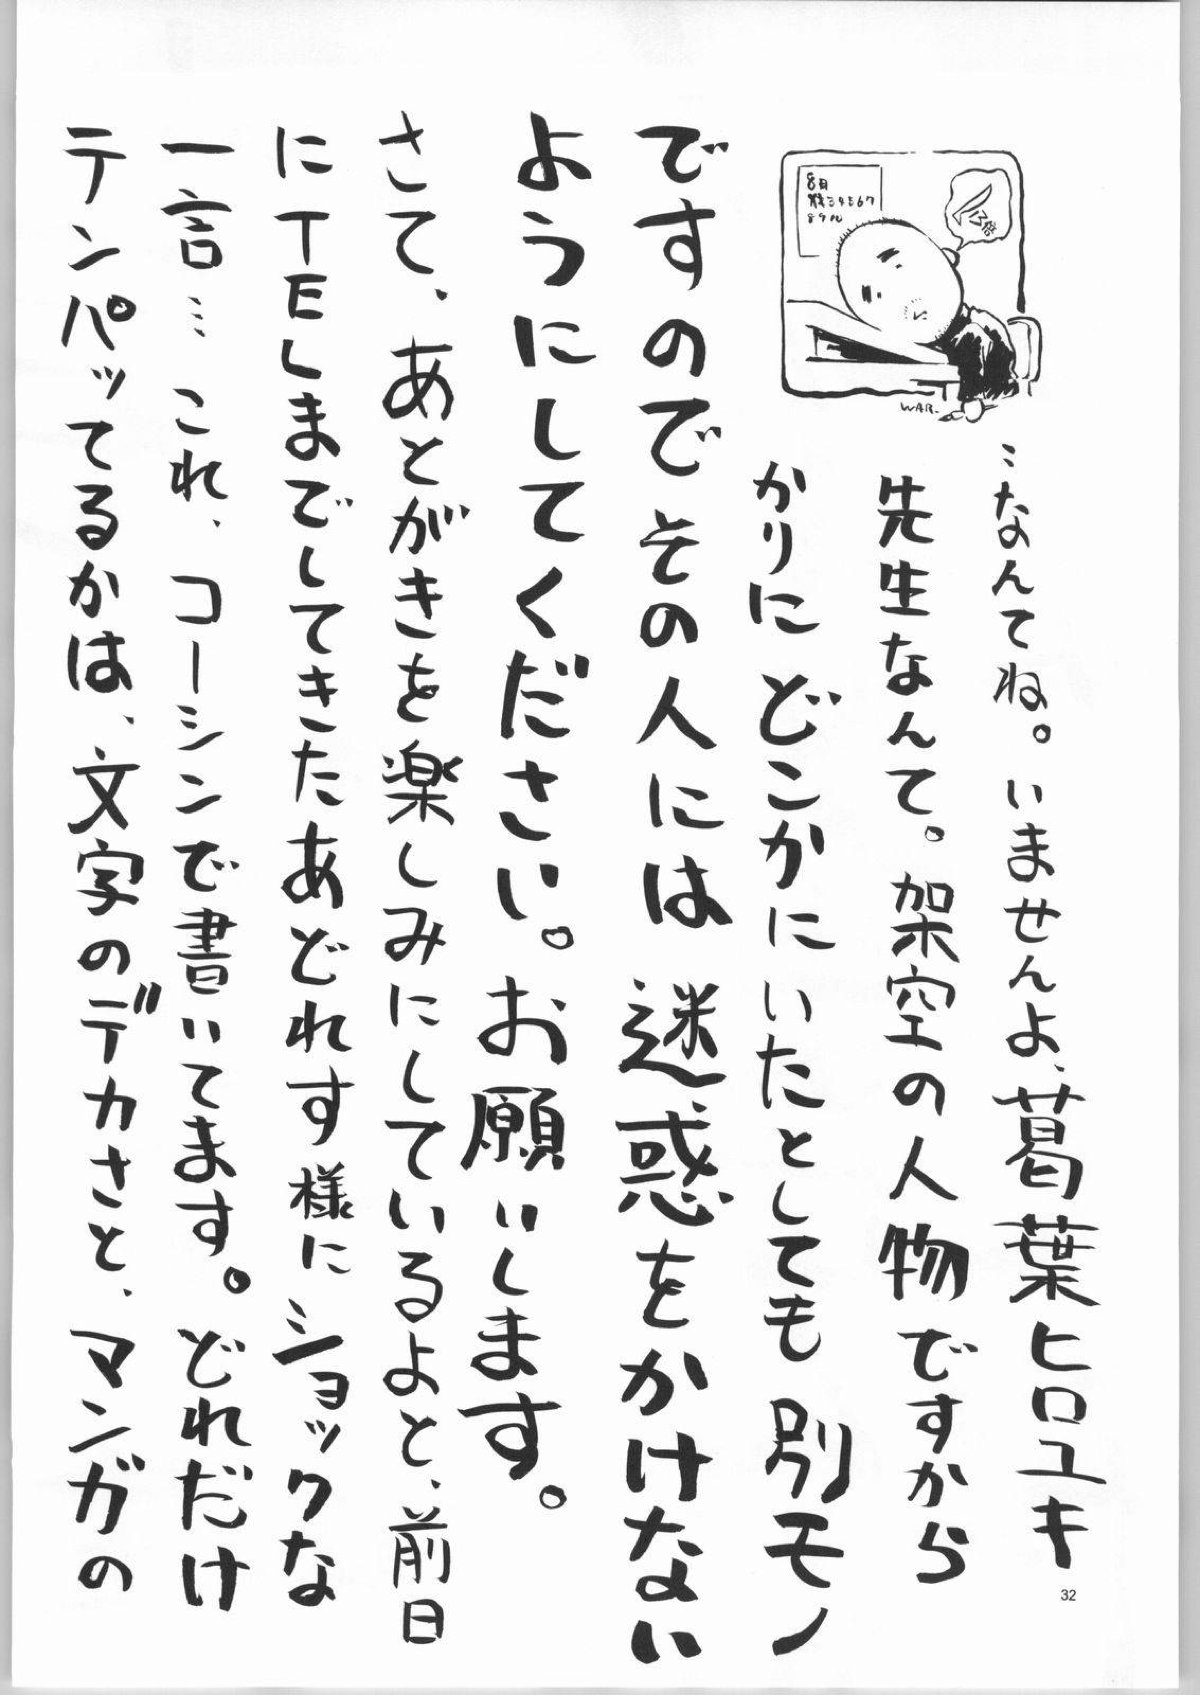 …なんてね。いませんよ、葛葉ヒロユキ
先生なんて。架空の人物ですから
かりにどこかにいたとしても別モノ
ですのでその人には迷惑をかけない
ようにしてください。お願いします。
さて、あとがきを楽しみにしているよと、前日
にTELまでしてきたあどれす様にショックな
一言… これ、コーシンで書いてます。どれだけ
テンパッてるかは、文字のデカさと、マンガの
8月
WAR-
32